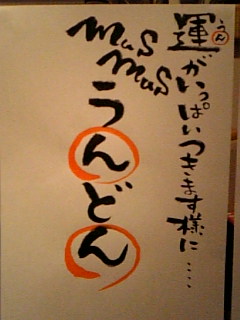 運がいっぱいつきます様に....
うん
mus mus
うんどん